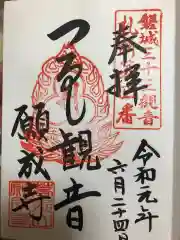 奉拝
磐城三十三観音
番
つるし観音
願成寺
令和元年
六月二十四日